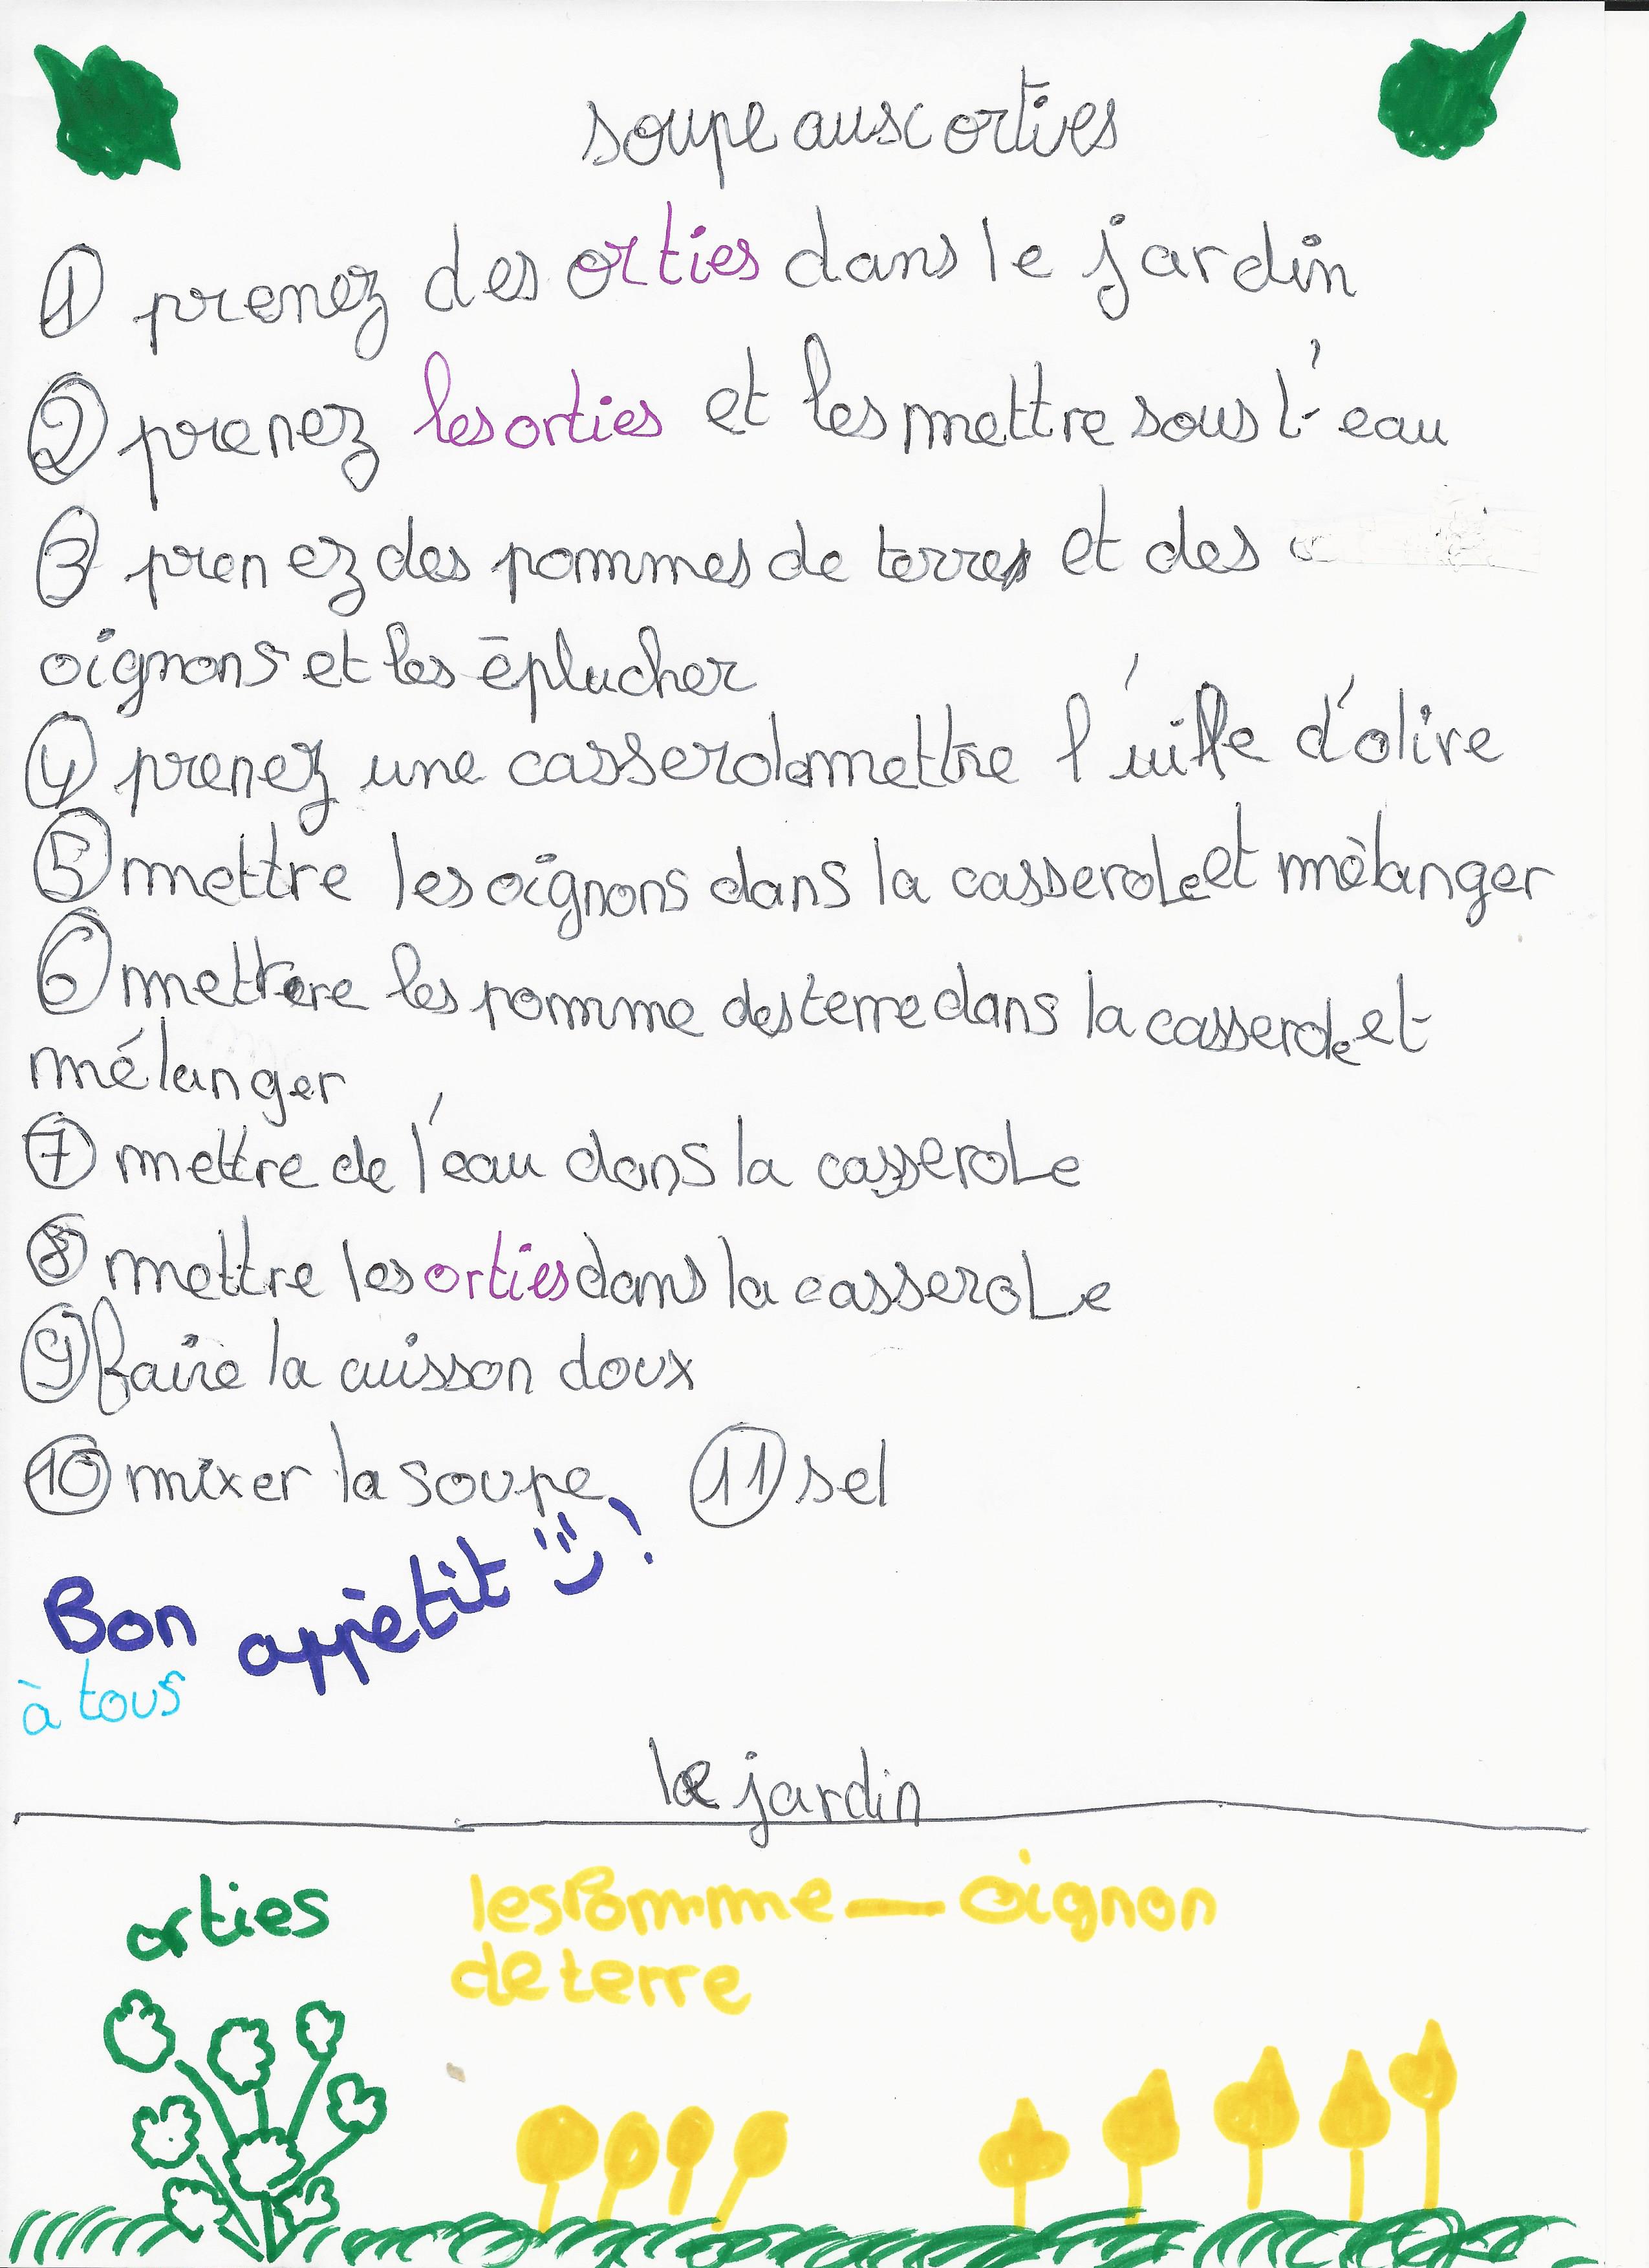 soupe aux orties
① prenez des orties dans le jardin
② prenez les orties et les mettre sous l'eau
③ prenez des pommes de terres et des
oignons et les éplucher
④ prenez une casserole mettre l'uille d'olive
⑤ mettre les oignons dans la casserole et mèlanger
⑥ mettere les pomme des terre dans la casserole et
mélanger
⑦ mettre de l'eau dans la casserole
⑧ mettre les orties dans la casserole
⑨ faire la cuisson doux
⑩ mixer la soupe ⑪ sel
Bon appètit !
à tous
le jardin
orties les Pomme — Oignon
de terre